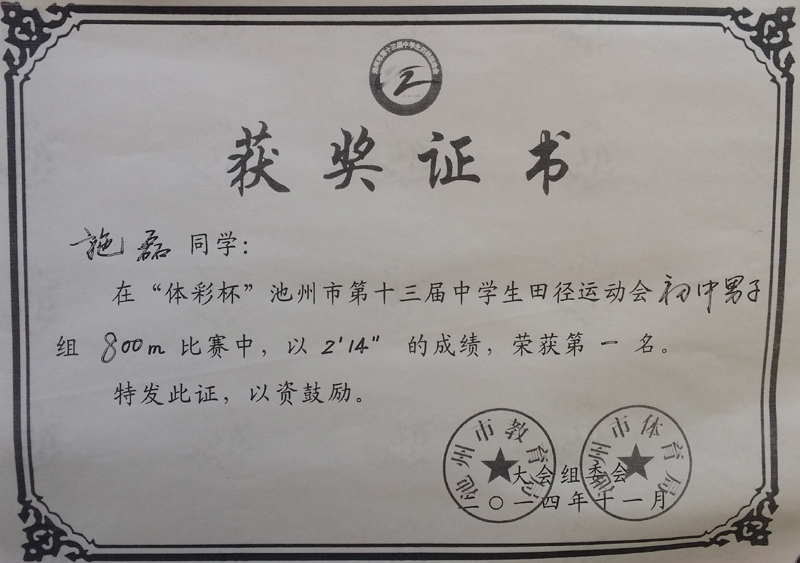 池州市第十三届中学生田径运动会
获奖证书
施磊 同学：
在“体彩杯”池州市第十三届中学生田径运动会初中男子
组 800m 比赛中，以 2'14" 的成绩，荣获第一名。
特发此证，以资鼓励。
池州市教育局
池州市体育局
大会组委会
二〇一四年十一月